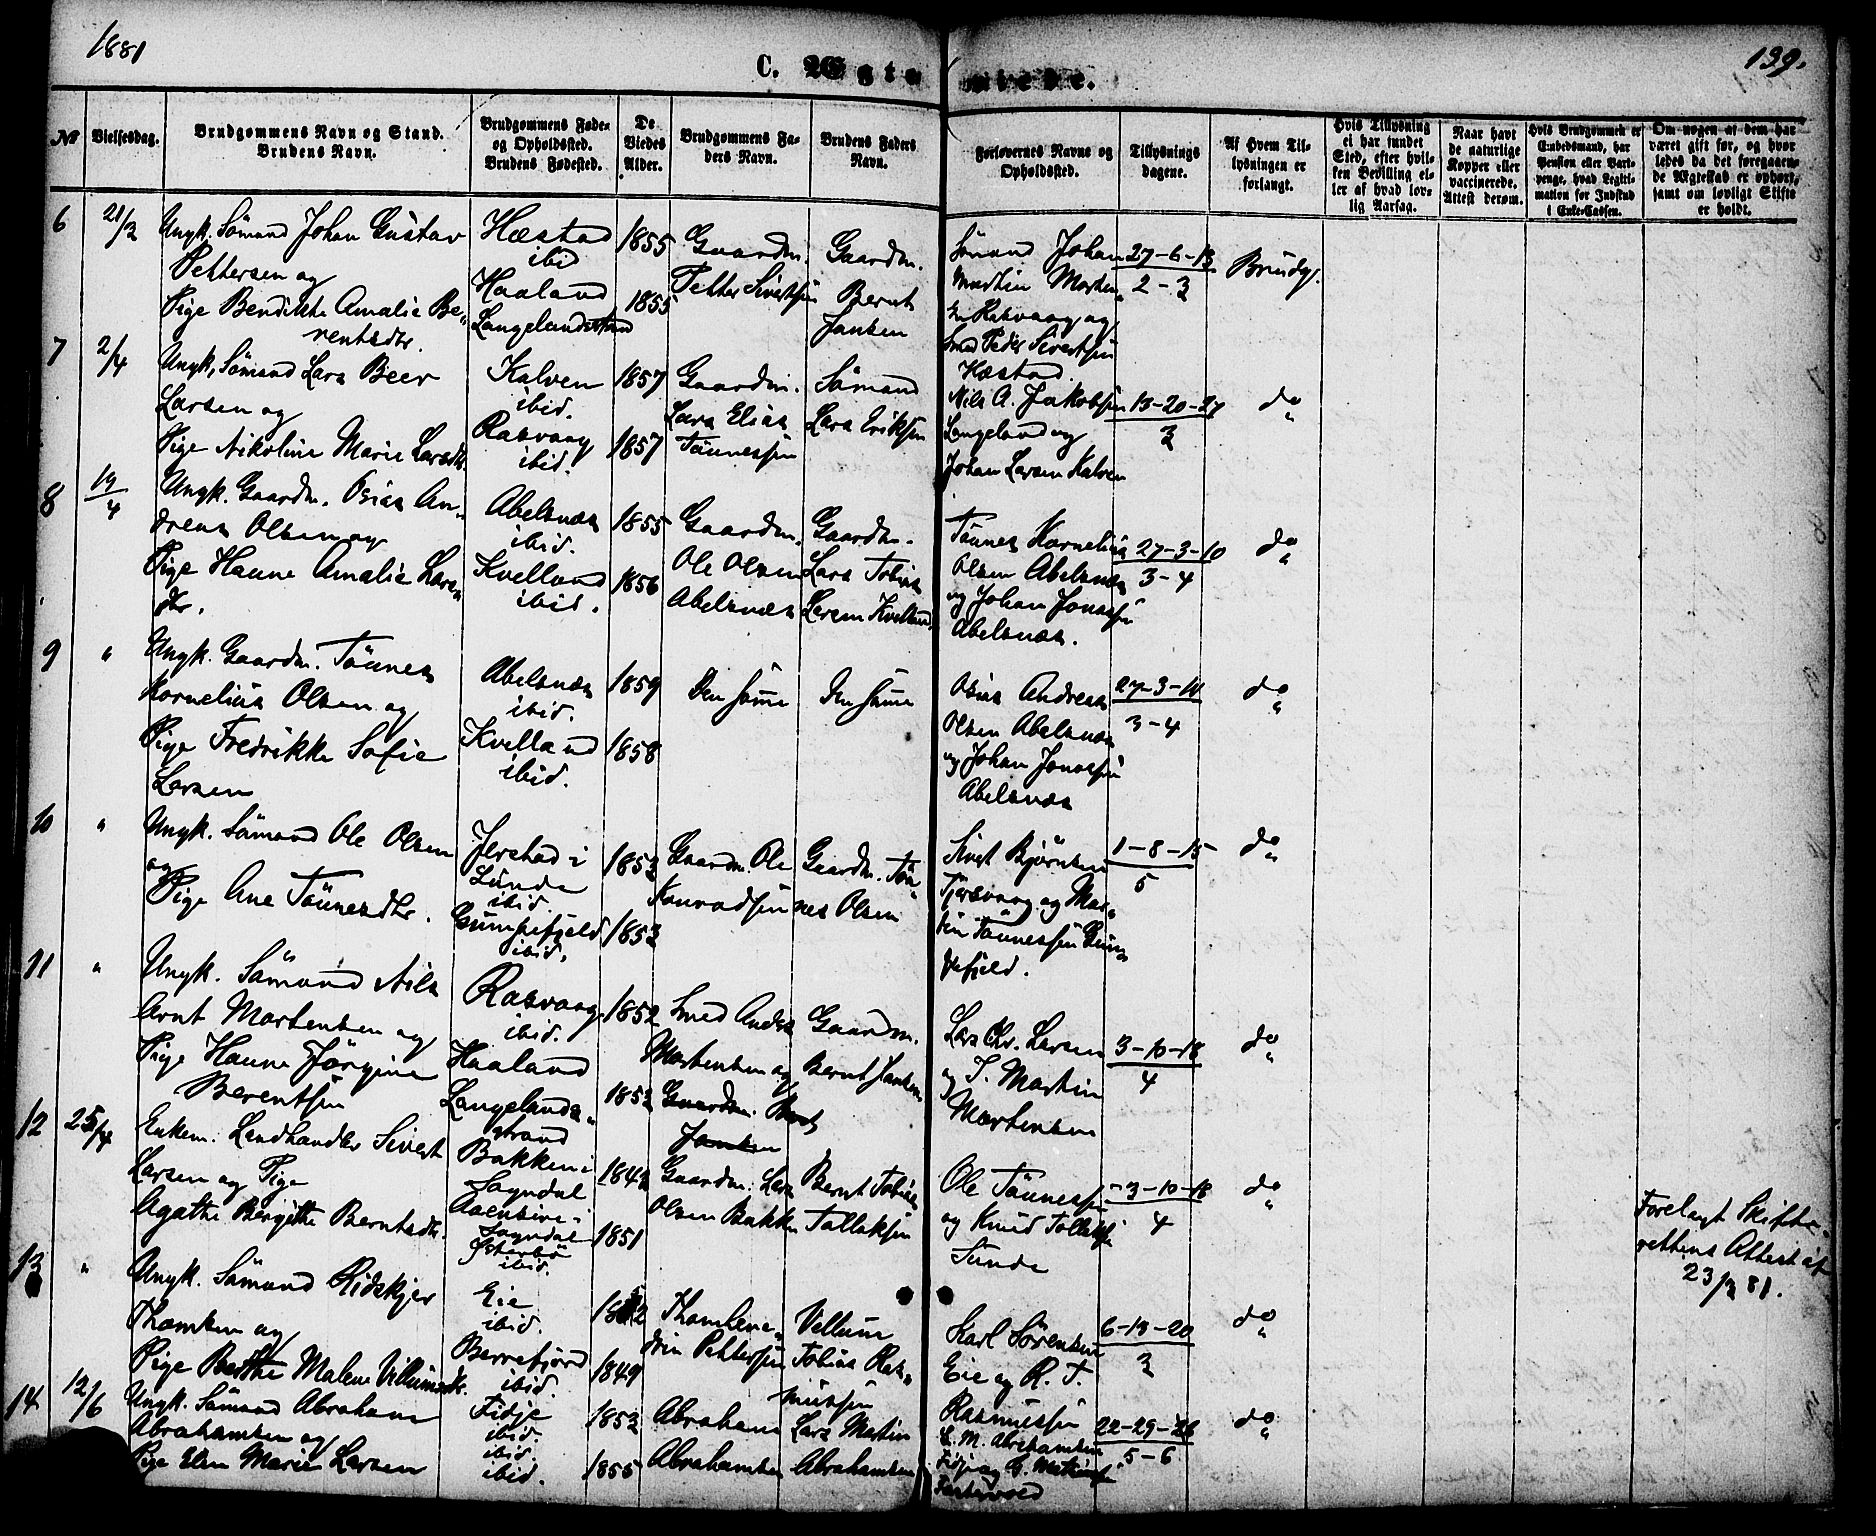 1881
139.
C. Ægteviede.
№
Vielsesdag.
Brudgommens Navn og Stand.
Brudens Navn.
Brudgommens Føde-
og Opholdssted.
Brudens Fødested.
De
Viedes
Alder.
Brudgommens Fa-
ders Navn.
Brudens Faders
Navn.
Forlovernes Navne og
Opholdssted.
Tillysnings
dagene.
Af Hvem Til-
lysningen er
forlangt.
Hvis Tillysning
ei har fundet
Sted, efter hvil-
ken Bevilling el-
ler af hvad lov-
lig Aarsag.
Naar havt
de naturlige
Kopper eller
vaccinerede.
Attest derom.
Hvis Brudgommen er
Embedsmand, har
Pension eller Vart-
penge, hvad Legiti-
mation for Indskud
i Enke-Cassen.
Om nogen af dem har
været gift før, og hvor
ledes da det foregaaen-
de Ægteskab er ophørt,
samt om lovligt Skifte
er holdt.
6
21/3
Ungk. Sømand Johan Gustav
Pettersen og
Pige Bendikte Amalie Be-
rentsdtr.
Hæstad
ibid
Haaland
Langelandstrand
1855
1855
Gaardm.
Petter Sivertsen
Gaardm.
Bernt
Jansen
Sømand Johan
Martin Morten-
sen Rasvaag og
Smed Peder Sivertsen
Hæstad
27-6-13
2-3
Brudg.
7
2/4
Ungk. Sømand Lars Beer
Larsen og
Pige Nikoline Marie Larsdtr.
Kalven
ibid.
Rasvaag
ibid.
1857
1857
Gaardm.
Lars Elias
Tönnessen
Sömand
Lars Eriksen
Nils A. Jakobsen
Langeland og
Johan Larsen Kalven
13-20-27
3
do
8
19/4
Ungk. Gaardm. Osias An-
dreas Olsen og
Pige Hanne Amalie Lars-
dtr.
Abelsnæs
ibid.
Kvelland
ibid.
1855
1856
Gaardm.
Ole Olsen
Abelsnæs
Gaardm.
Lars Tobias
Larsen Kvelland
Tönnes Kornelius
Olsen Abelsnæs
og Johan Jonassen
Abelsnæs.
27-3-10
3-4
do
9
"
Ungk. Gaardm. Tönnes
Kornelius Olsen og
Pige Fredrikke Sofie
Larsen
Abelsnæs
ibid.
Kvelland
ibid.
1859
1858
Den samme
Den samme
Osias Andreas
Olsen Abelsnæs
og Johan Jonassen
Abelsnæs
27-3-10
3-4
do
10
"
Ungk. Sömand Ole Olsen
og
Pige Ane Tönnesdtr.
Jerstad i
Lunde
ibid.
Gumpefjeld
ibid.
1853
1853
Gaardm. Ole
Konradsen
Gaardm. Tön-
nes Olsen
Sivert Bjørnsen
Tjørsvaag og Mar-
tin Tönnessen Gum-
pefjeld.
1-8-15
5
do
11
"
Ungk. Sömand Nils
Arnt Mortensen og
Pige Hanne Jörgine
Berentsen
Rasvaag
ibid.
Haaland
Langelands-
strand
1852
1853
Smed Anders
Mortensen og
Gaardm. Bernt
Jansen
Gaardm.
Bernt Jansen
Lars Chr. Larsen
og T. Martin
Mortensen
3-10-18
4
do
12
25/4
Enkem. Landhandler Sivert
Larsen og Pige
Agathe Bergitte Berntsdtr.
Bakken i
Sogndal
Aaensire i
Sogndal
Østerbö
ibid.
1843
1851
Gaardm. Lars
Olsen Bakken
Bernt Tobias
Tollaksen
Ole Tönnessen
og Knud Tollaksen
Sunde
3-10-18
4
do
Forelagt Skifte-
rettens Attest af
23/3 81.
13
"
Ungk. Sömand Eidskjer
Thomsen og
Pige Berthe Malene Villumsdtr.
Eie
ibid.
Berrefjord
ibid.
1849
Pettersen
Vellum
Tobias Ras-
mussen
Karl Sörensen
Eie og R. T.
Rasmussen
6-13-20
3
do
14
12/6
Ungk. Sömand Abraham
Abrahamsen og
Pige Elen Marie Larsen
Fidje
ibid.
ibid.
ibid.
1853
1855
Abraham
Abrahamsen
Lars Martin
Abrahamsen
L. M. Abrahamsen
Fidje og
22-29-26
5-6
do